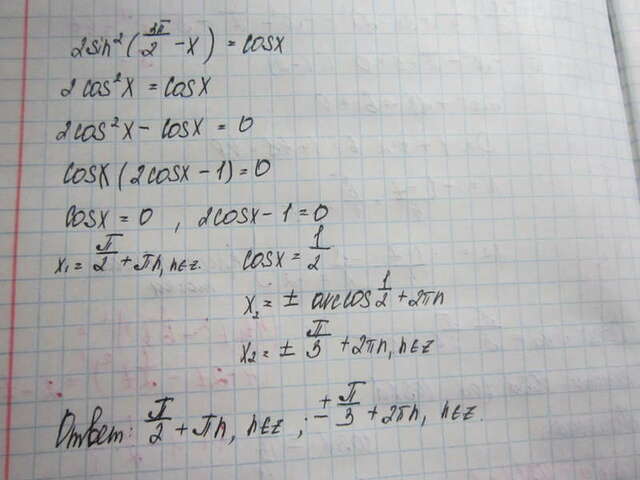 2sin²(3π/2 - x) = cosx
2cos²x = cosx
2cos²x - cosx = 0
cosx(2cosx - 1) = 0
cosx = 0 , 2cosx - 1 = 0
x₁ = π/2 + πn, n∈z. cosx = 1/2
x₂ = ± arccos 1/2 + 2πn
x₂ = ± π/3 + 2πn, n∈z
Ответ: π/2 + πn, n∈z ; ± π/3 + 2πn, n∈z.